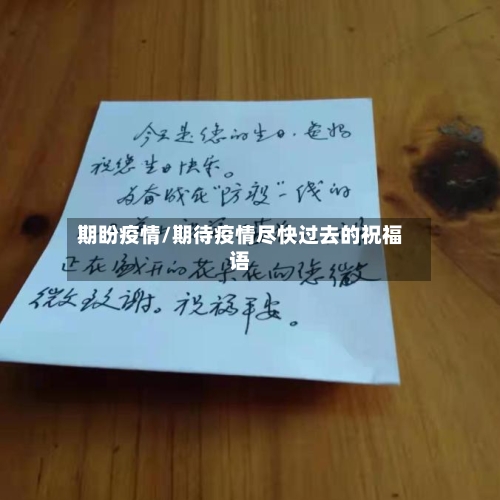 今天是您的生日，爸妈
祝您生日快乐。
为奋战在“防疫”一线的
期盼疫情/期待疫情尽快过去的祝福
语
正在盛开的花朵在向您微
微致谢。祝福平安。